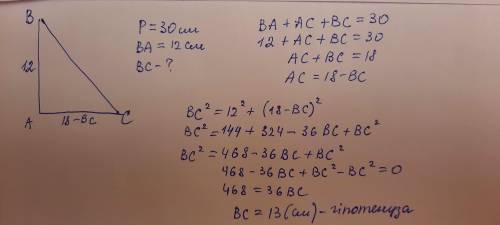 B
12
A
18-BC
C
P=30см
BA=12см
BC-?
BA+AC+BC=30
12+AC+BC=30
AC+BC=18
AC=18-BC
BC²=12²+(18-BC)²
BC²=144+324-36BC+BC²
BC²=468-36BC+BC²
468-36BC+BC²-BC²=0
468=36BC
BC=13(см)-гіпотенуза